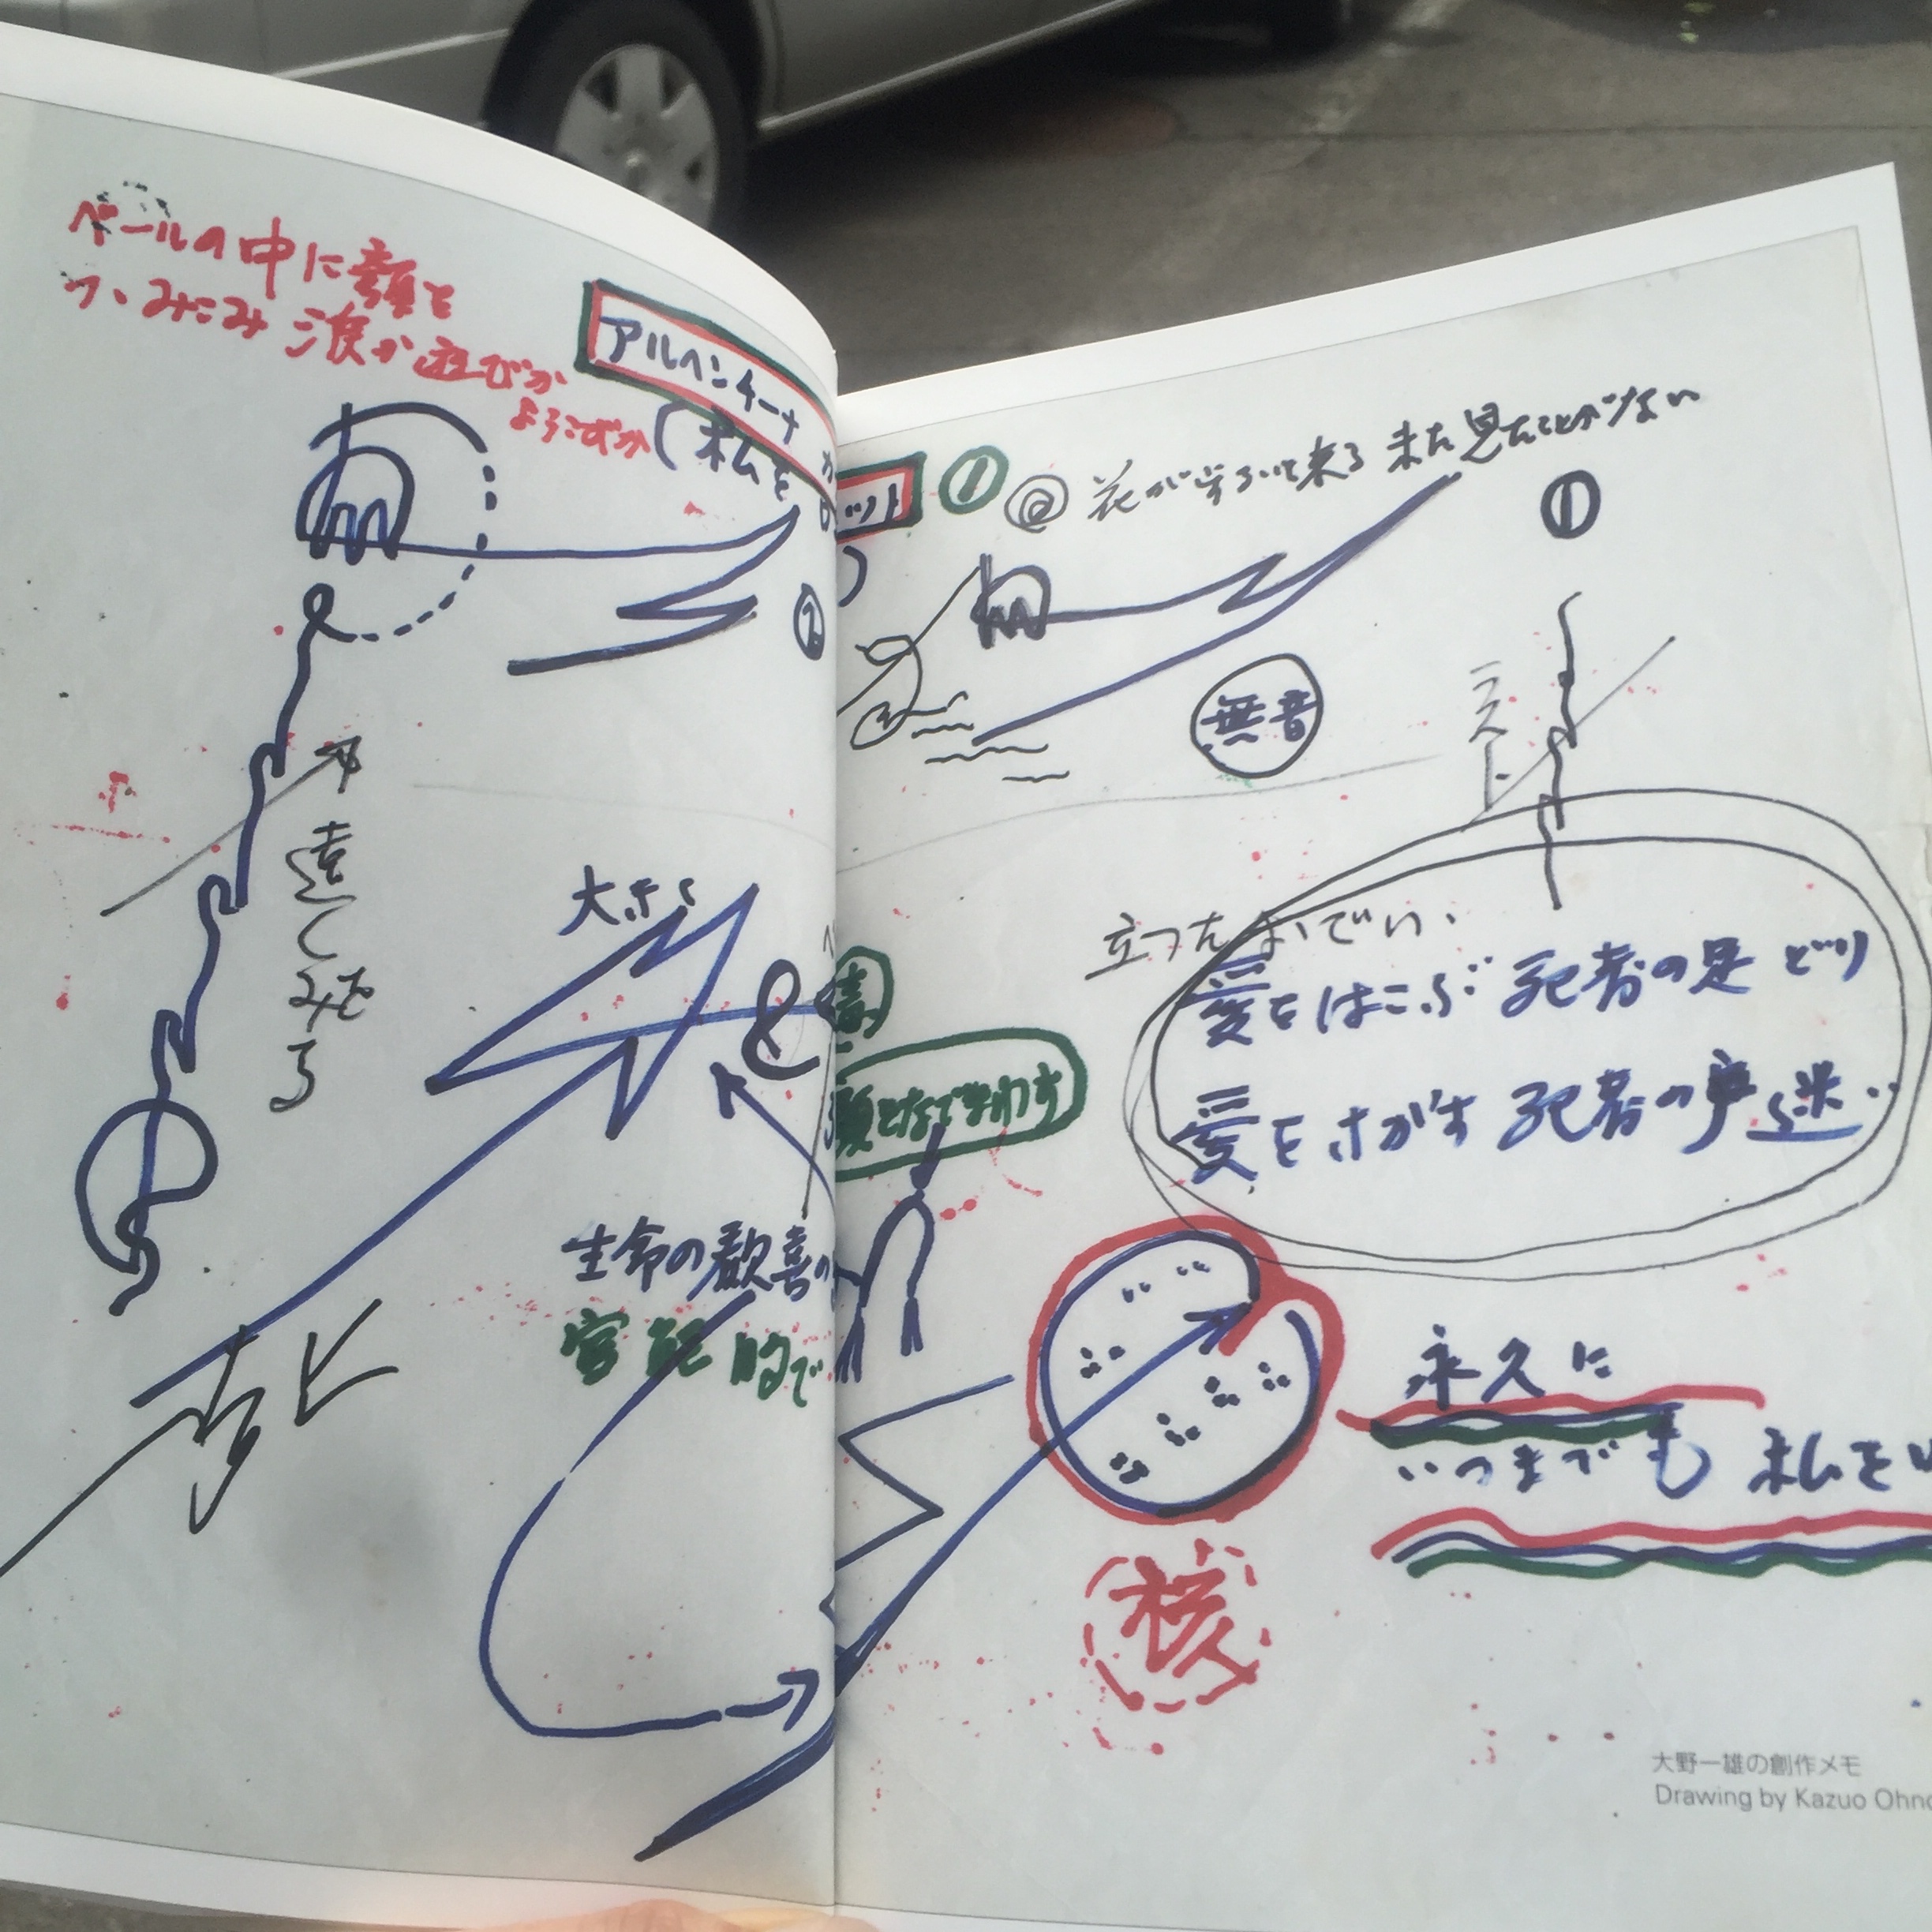 ベールの中に顔を
つっみこみ 涙か 遊びか
よろこびか
アルヘンチーナ
(私を
②
遠くをみる
大きく
生命の歓喜の
官能的で
ット ① @ 花が歩いて来る まだ見たことがない
①
無音
ラスト
立ったおでい、
愛をはこぶ 死者の足どり
愛をさがす 死者の声
顔をなでまわす
永久に
いつまでも 私を
核
大野一雄の創作メモ
Drawing by Kazuo Ohno